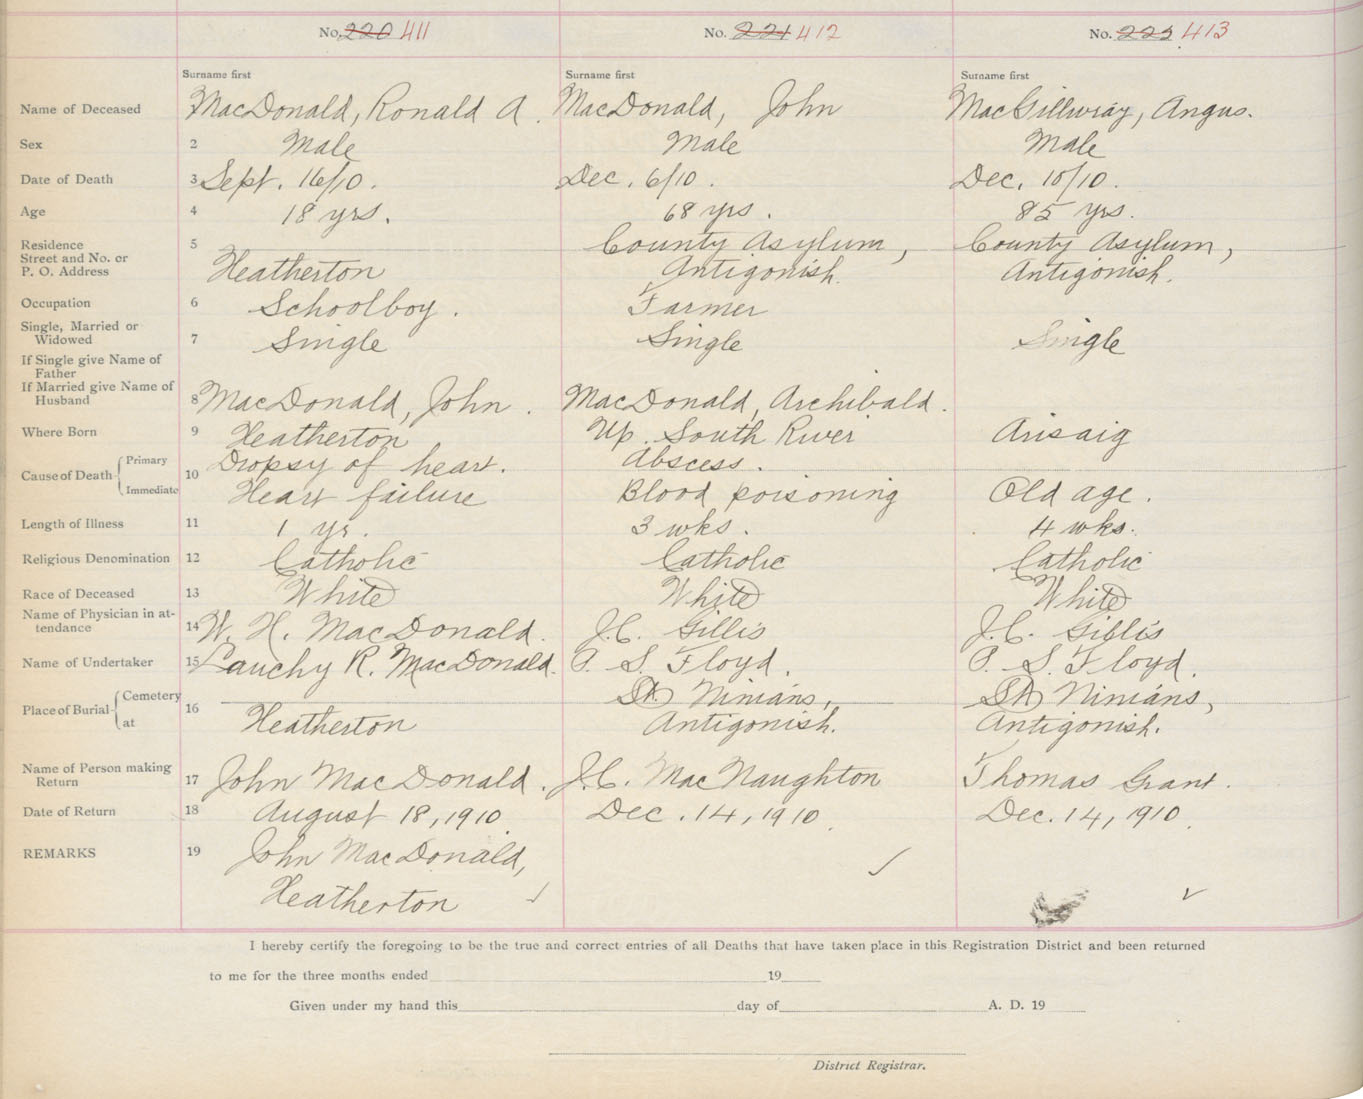 No. 220 411 No. 221 412 No. 222 413
Surname first Surname first Surname first
Name of Deceased MacDonald, Ronald A. MacDonald, John MacGillivray, Angus.
Sex 2 Male Male Male
Date of Death 3 Sept. 16/10. Dec. 6/10. Dec. 10/10.
Age 4 18 yrs. 68 yrs. 85 yrs.
Residence 5 County Asylum, County Asylum,
Street and No. or
P. O. Address Heatherton Antigonish. Antigonish.
Occupation 6 Schoolboy. Farmer
Single, Married or
Widowed 7 Single Single Single
If Single give Name of
Father
If Married give Name of
Husband 8 MacDonald, John. MacDonald, Archibald.
Where Born 9 Heatherton Up. South River Arisaig
Cause of Death Primary 10 Dropsy of heart. Abscess.
Immediate Heart failure Blood poisoning Old age.
Length of Illness 11 1 yr. 3 wks. 4 wks.
Religious Denomination 12 Catholic Catholic Catholic
Race of Deceased 13 White White White
Name of Physician in at-
tendance 14 W. H. MacDonald. J.C. Gillis J.C. Gillis
Name of Undertaker 15 Lauchy R. MacDonald. P. S. Floyd. P. S. Floyd.
Place of Burial Cemetery 16 St. Ninians, St. Ninians,
at Heatherton Antigonish. Antigonish.
Name of Person making
Return 17 John MacDonald. J.C. MacNaughton Thomas Grant.
Date of Return 18 August 18, 1910 Dec. 14, 1910. Dec. 14, 1910.
REMARKS 19 John MacDonald,
Heatherton
I hereby certify the foregoing to be the true and correct entries of all Deaths that have taken place in this Registration District and been returned
to me for the three months ended 19
Given under my hand this day of A. D. 19
District Registrar.